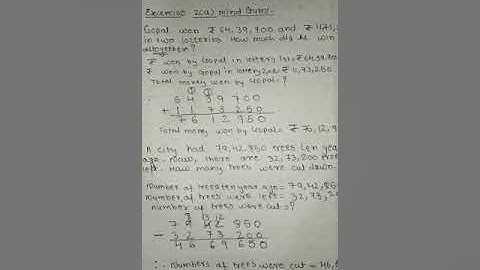 Exercise 2(a) mind Chart.
Gopal won ₹ 64,39,700 and ₹ 11,73,2
in two lotteries. How much did he win
altogether?
₹ won by Gopal in lottery 1st = ₹ 64,39,700
₹ won by Gopal in lottery 2nd = ₹ 11,73,250
Total money won by Gopal = ?
① ①
64 39 700
+ 11 73 250
76 12 950
Total money won by Gopal = ₹ 76,12,9
A city had 79,42,850 trees ten year
ago. Now, there are 32,73,200 tree
left. How many trees were cut down.
Number of trees ten year ago = 79,42,85
Number of trees were left = 32,73,20
number of trees were cut = ?
8 13 12
79 42 850
- 32 73 200
46 69 650
∴ Numbers of trees were cut = 46,6